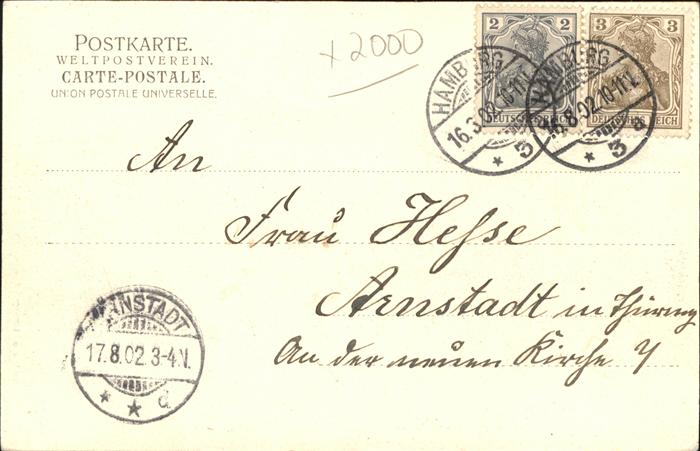 POSTKARTE.
WELTPOSTVEREIN.
CARTE-POSTALE.
UNION POSTALE UNIVERSELLE.
+2000
2 2
DEUTSCHES REICH
3 3
DEUTSCHES REICH
HAMBURG
16.8.02.10-11V.
* 3
HAMBURG
16.8.02.10-11V.
* 3 a
An
Frau Hesse
Arnstadt in Thüring
An der neuen Kirche
ARNSTADT
17.8.02.3-4V.
* * a